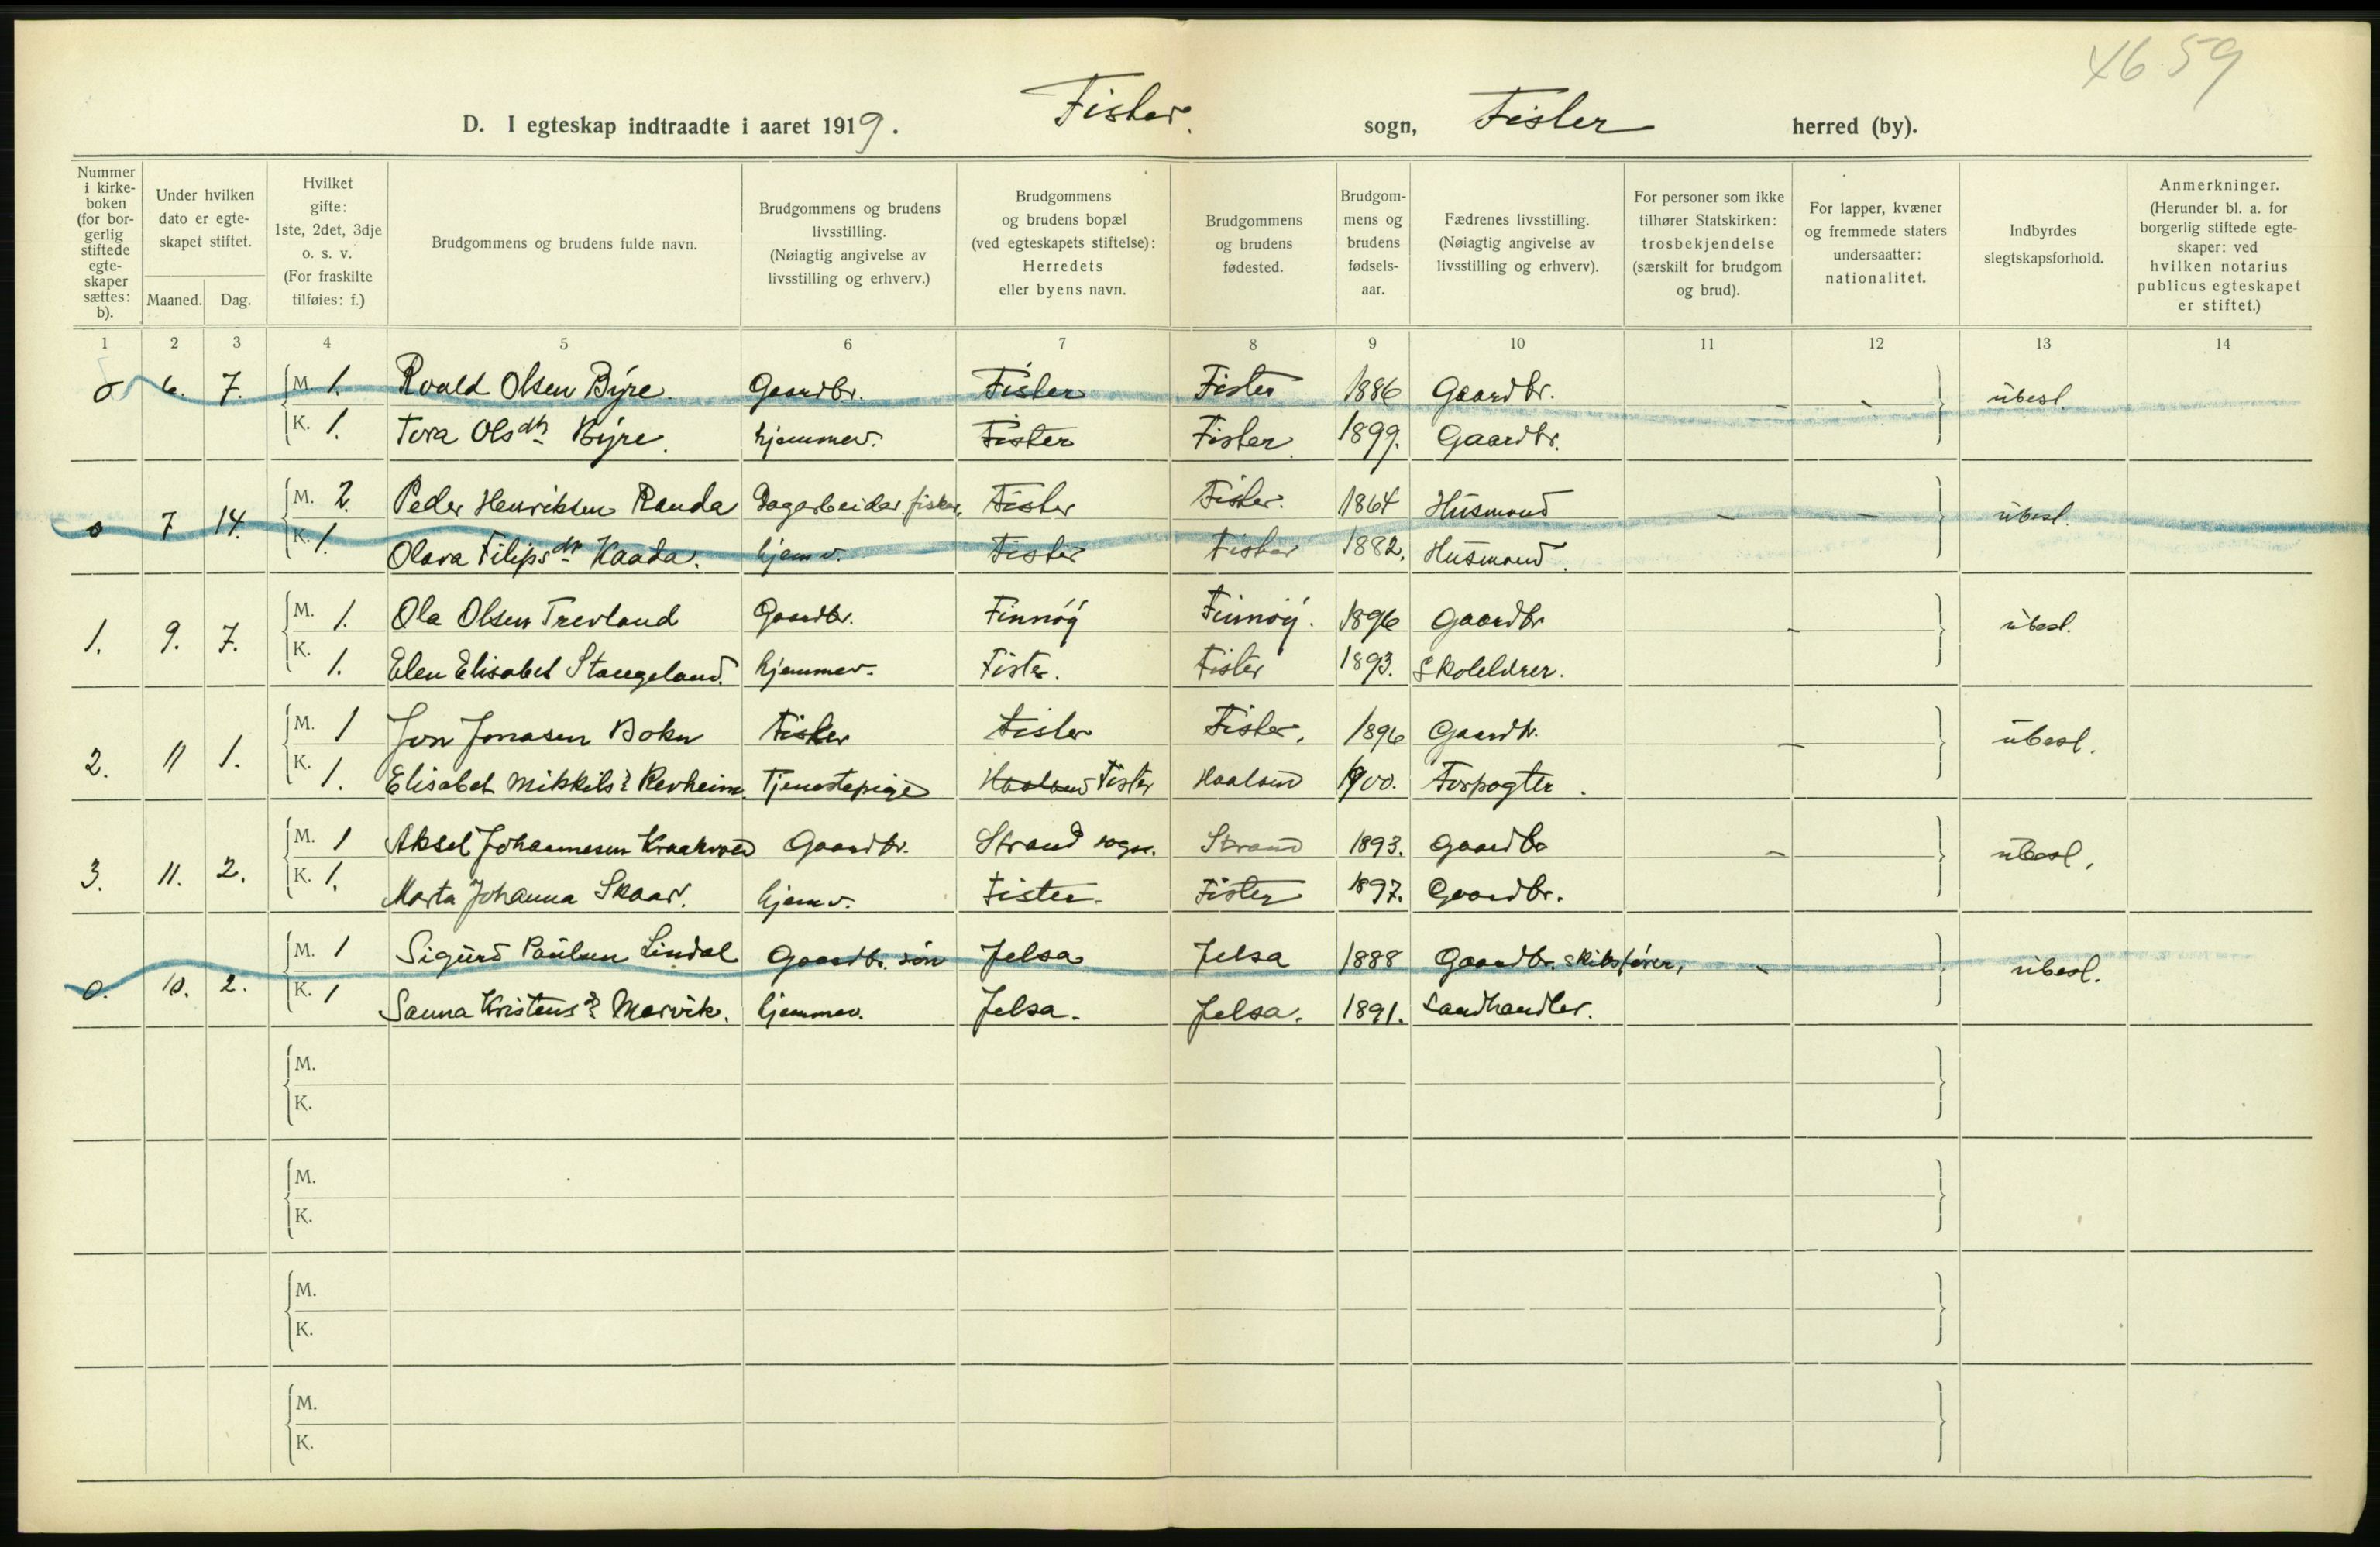 4659
D. I egteskap indtraadte i aaret 1919. Fister. sogn, Fister herred (by).
Nummer i kirkeboken (for borgerlig stiftede egteskaper sættes: b).
Under hvilken dato er egteskapet stiftet.
Maaned. Dag.
Hvilket gifte: 1ste, 2det, 3dje o. s. v. (For fraskilte tilføies: f.)
Brudgommens og brudens fulde navn.
Brudgommens og brudens livsstilling. (Nøiagtig angivelse av livsstilling og erhverv.)
Brudgommens og brudens bopæl (ved egteskapets stiftelse): Herredets eller byens navn.
Brudgommens og brudens fødested.
Brudgommens og brudens fødselsaar.
Fædrenes livsstilling. (Nøiagtig angivelse av livsstilling og erhverv).
For personer som ikke tilhører Statskirken: trosbekjendelse (særskilt for brudgom og brud).
For lapper, kvæner og fremmede staters undersaatter: nationalitet.
Indbyrdes slegtskapsforhold.
Anmerkninger. (Herunder bl. a. for borgerlig stiftede egteskaper: ved hvilken notarius publicus egteskapet er stiftet.)
1 2 3 4 5 6 7 8 9 10 11 12 13 14
o 6. 7. M. 1. Roald Olsen Byre. Gaardbr. Fister Fister 1886 Gaardbr. - - ubesl.
K. 1. Tora Olsdtr Byre. hjemmev. Fister Fister. 1899. Gaardbr.
o 7 14. M. 2. Peder Henriksen Randa Dagarbeider, fisker. Fister Fister. 1864 Husmand - - ubesl.
K. 1. Olava Filipsdtr Kaada. hjemv. Fister Fister 1882. Husmand.
1. 9. 7. M. 1. Ola Olsen Trevland Gaardbr. Finnøy Finnøy. 1896 Gaardbr - ubesl.
K. 1. Elen Elisabet Stangeland. hjemmev. Fister. Fister 1893. Skolelærer.
2. 11 1. M. 1 Jon Jonasen Bokn Fisker Fister Fister. 1896 Gaardbr. - ubesl.
K. 1. Elisabet Mikkelsd Revheim. Tjenestepige Haaland Fister Haaland 1900. Forpagter.
3. 11. 2. M. 1 Aksel Johannesen Gaardbr. Strand sogn. Strand 1893. Gaardbr - ubesl.
K. 1. Marta Johanna Skaar. hjemv. Fister. Fister 1897. Gaardbr.
o. 10. 2. M. 1 Sigurd Paulsen Lindal Gaardbr. søn Jelsa Jelsa 1888 Gaardbr. skibsfører, - ubesl.
K. 1 Sanna Kristensd Marvik. hjemmev. Jelsa. Jelsa. 1891. Landhandler.
M.
K.
M.
K.
M.
K.
M.
K.